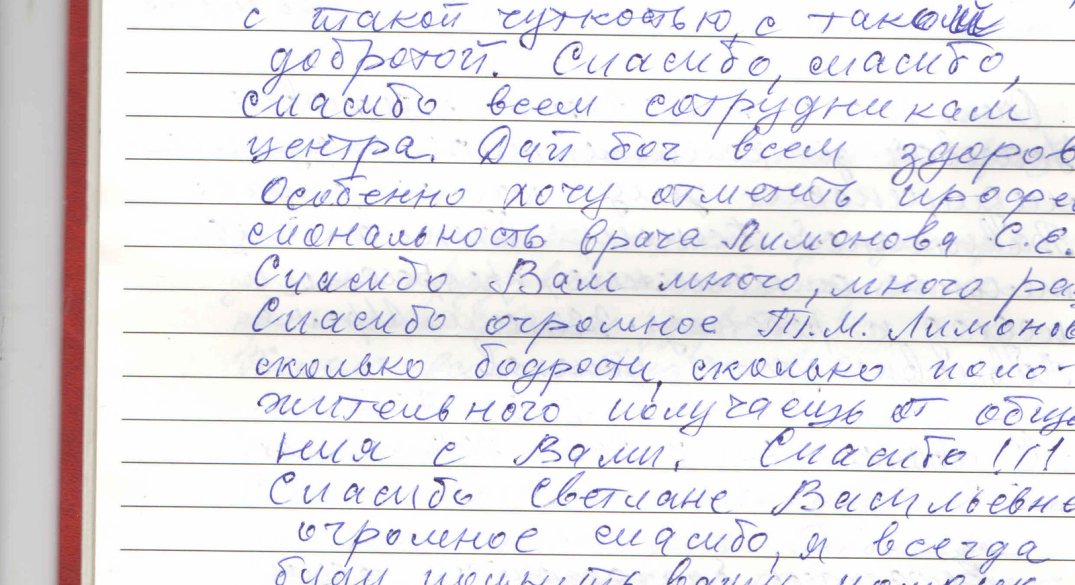 с такой чуткостью, с такой
добротой. Спасибо, спасибо,
спасибо всем сотрудникам
центра. Дай бог всем здоров
Особенно хочу отметить профес
сиональность врача Лимонова С.Е.
Спасибо Вам много, много раз
Спасибо огромное Т.М. Лимонов
сколько бодрости, сколько поло-
жительного получаешь от обще
ния с Вами. Спасибо!!!
Спасибо Светлане Васильевне
огромное спасибо, я всегда
буду помнить